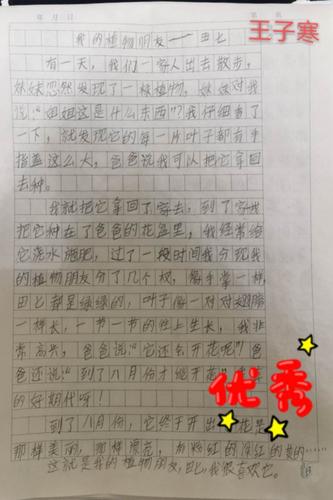 年 月 日
王子寒
我的植物朋友——田七
有一天，我们一家人出去散步，
妹妹忽然发现了一棵植物，妹妹对我
说："姐姐这是什么东西"？我仔细看了
一下，就发现它的每一片叶子都有手
指盖这么大，爸爸说我可以把它拿回
去种。
我就把它拿回了家去，到了家我
把它种在了爸爸的花盆里，我经常给
它浇水施肥，过了一段时间我分现我
的植物朋友分了几个杈，像手掌一样，
田七都是绿绿的，叶子像一对对翅膀
一样长，一节一节的往上生长，我非
常高兴，爸爸说："它还会开花呢！"爸
爸还说："到了八月份才能开花"
的好期代呀！
优秀
到了八月份，它终于开出花
那样美丽，那样漂亮，有粉红的深红的黄的……
这就是我的植物朋友，田七，我很喜欢它。